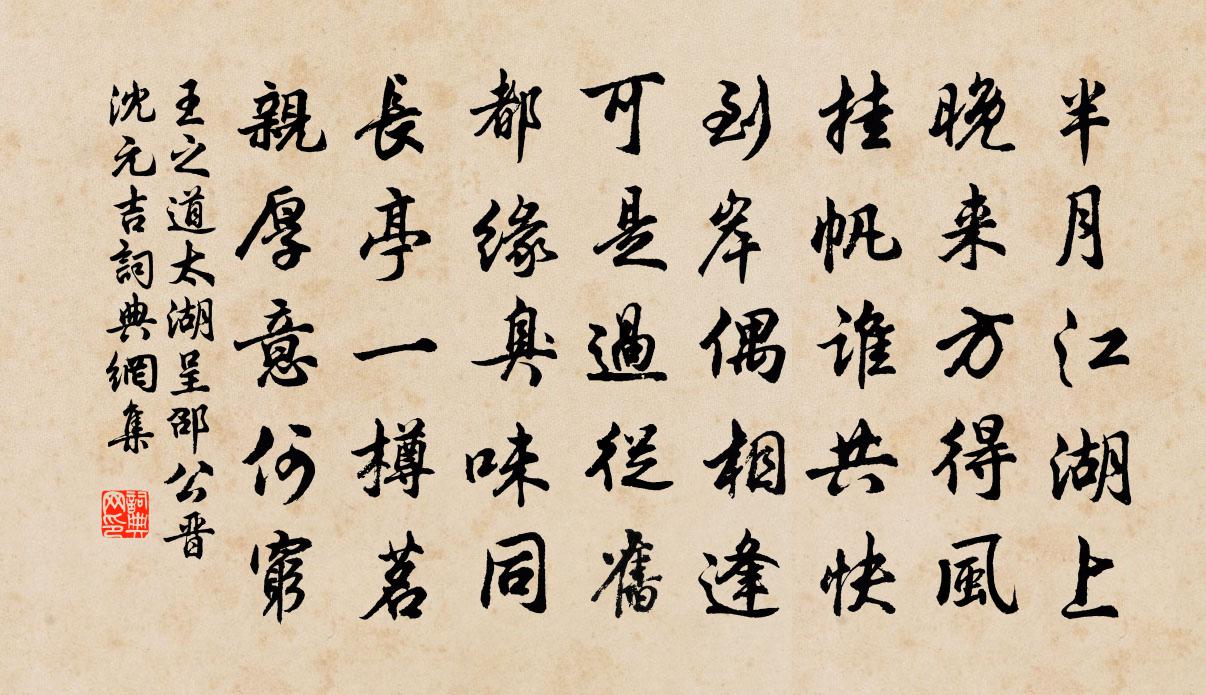 半月江湖上
晚来方得風
挂帆誰共快
到岸偶相逢
可是過從舊
都緣臭味同
長亭一樽茗
親厚意何窮
王之道太湖呈邵公晋
沈元吉詞典網集
詞典网印